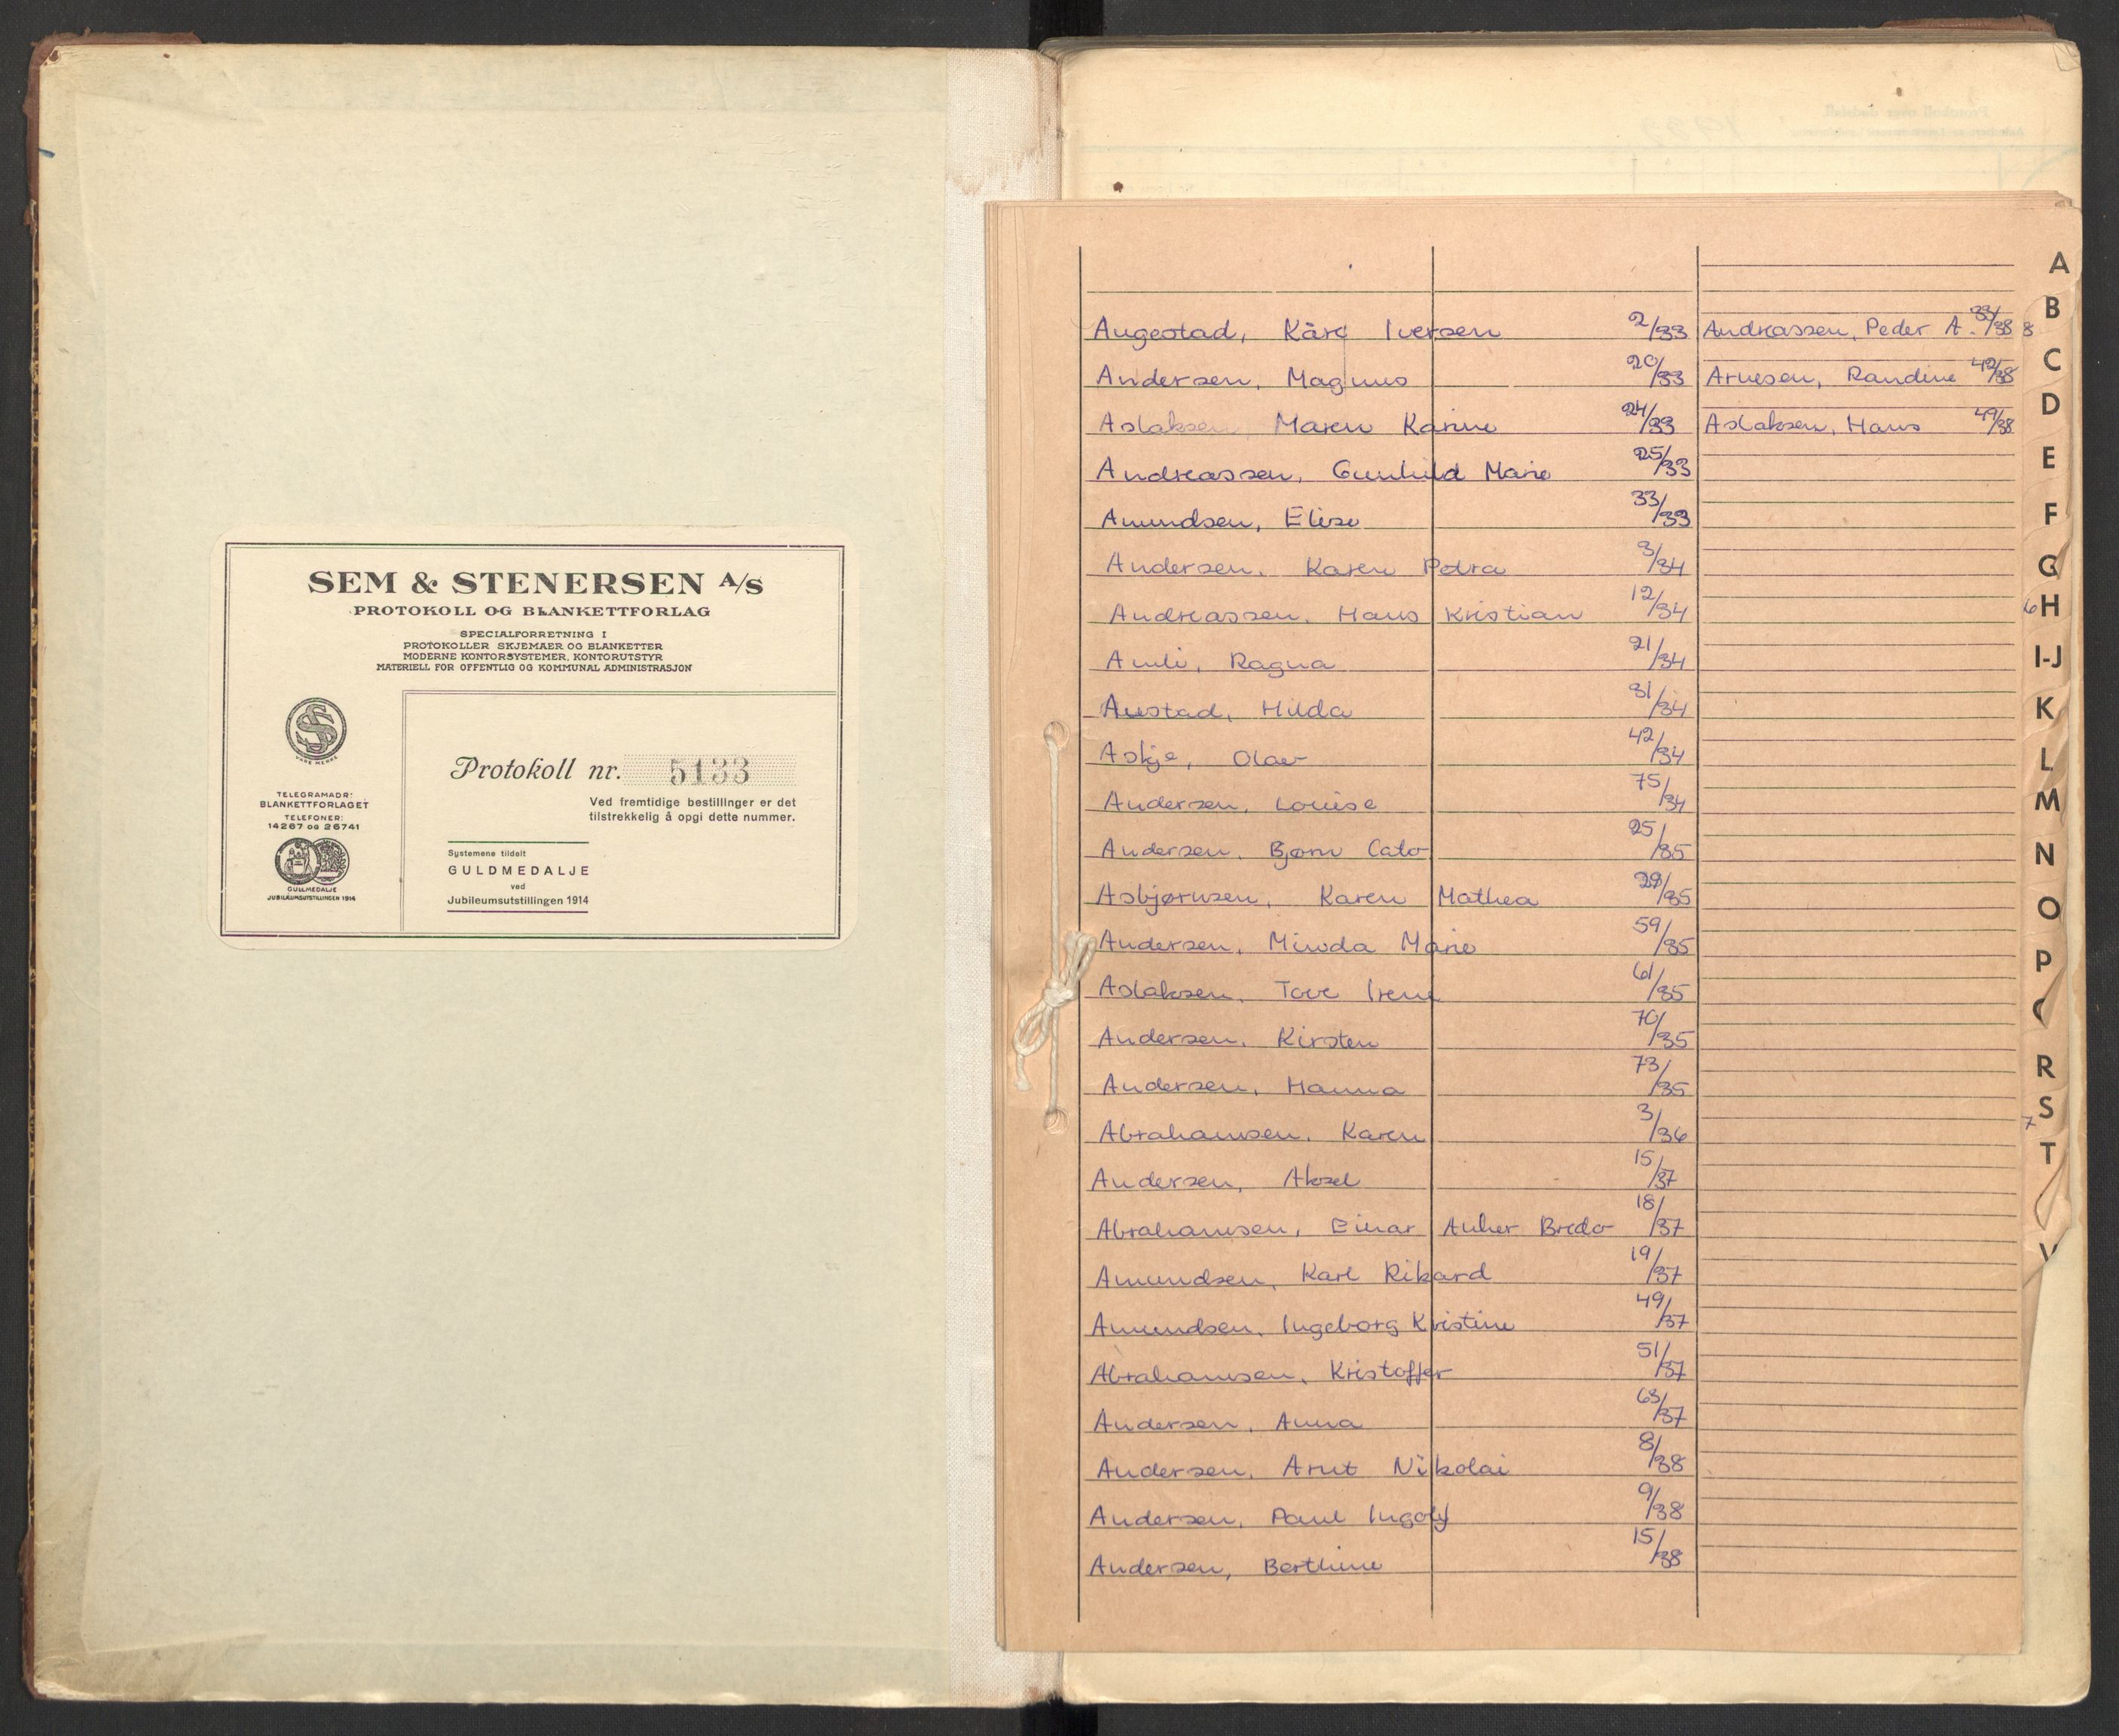 SEM & STENERSEN A/S
PROTOKOLL OG BLANKETTFORLAG
SPECIALFORRETNING I
PROTOKOLLER SKJEMAER OG BLANKETTER
MODERNE KONTORSYSTEMER, KONTORUTSTYR
MATERIELL FOR OFFENTLIG OG KOMMUNAL ADMINISTRASJON
VARE MERKE
TELEGRAMADR:
BLANKETTFORLAGET
TELEFONER:
14267 OG 26741
GULLMEDALJE
JUBILÆUMSUTSTILLINGEN 1914
Protokoll nr. 5133
Ved fremtidige bestillinger er det
tilstrekkelig å opgi dette nummer.
Systemene tildelt
GULDMEDALJE
ved
Jubileumsutstillingen 1914
Augestad, Kåre Iversen 2/33
Andersen, Magnus 20/33
Aslaksen Maren Karine 24/33
Andreassen, Gunhild Marie 25/33
Amundsen, Elise 33/33
Andersen, Karen Petra 3/34
Andreassen, Hans Kristian 12/34
Amli, Ragna 21/34
Austad, Hilda 31/34
Askje, Olav 42/34
Andersen, Louise 75/34
Andersen, Bjørn Cato 25/35
Asbjørnsen, Karen Mathea /35
Andersen, Minda Marie 59/35
Aslaksen, Tove Irene 61/35
Andersen, Kirsten 70/35
Andersen, Hanna 73/35
Abrahamsen, Karen 3/36
Andersen, Aksel 15/37
Abrahamsen, Einar Anker Bredo 18/37
Amundsen, Karl Rikard 19/37
Amundsen, Ingeborg Kristine 49/37
Abrahamsen, Kristoffer 51/37
Andersen, Anna 63/37
Andersen, Arnt Nikolai 8/38
Andersen, Paul Ingolf 9/38
Andersen, Berthine 15/38
Andreassen, Peder A. 33/38
Arnesen, Randine 42/38
Aslaksen, Hans 49/38
A
B
C
D
E
F
G
H
I-J
K
L
M
N
O
P
R
S
T
V